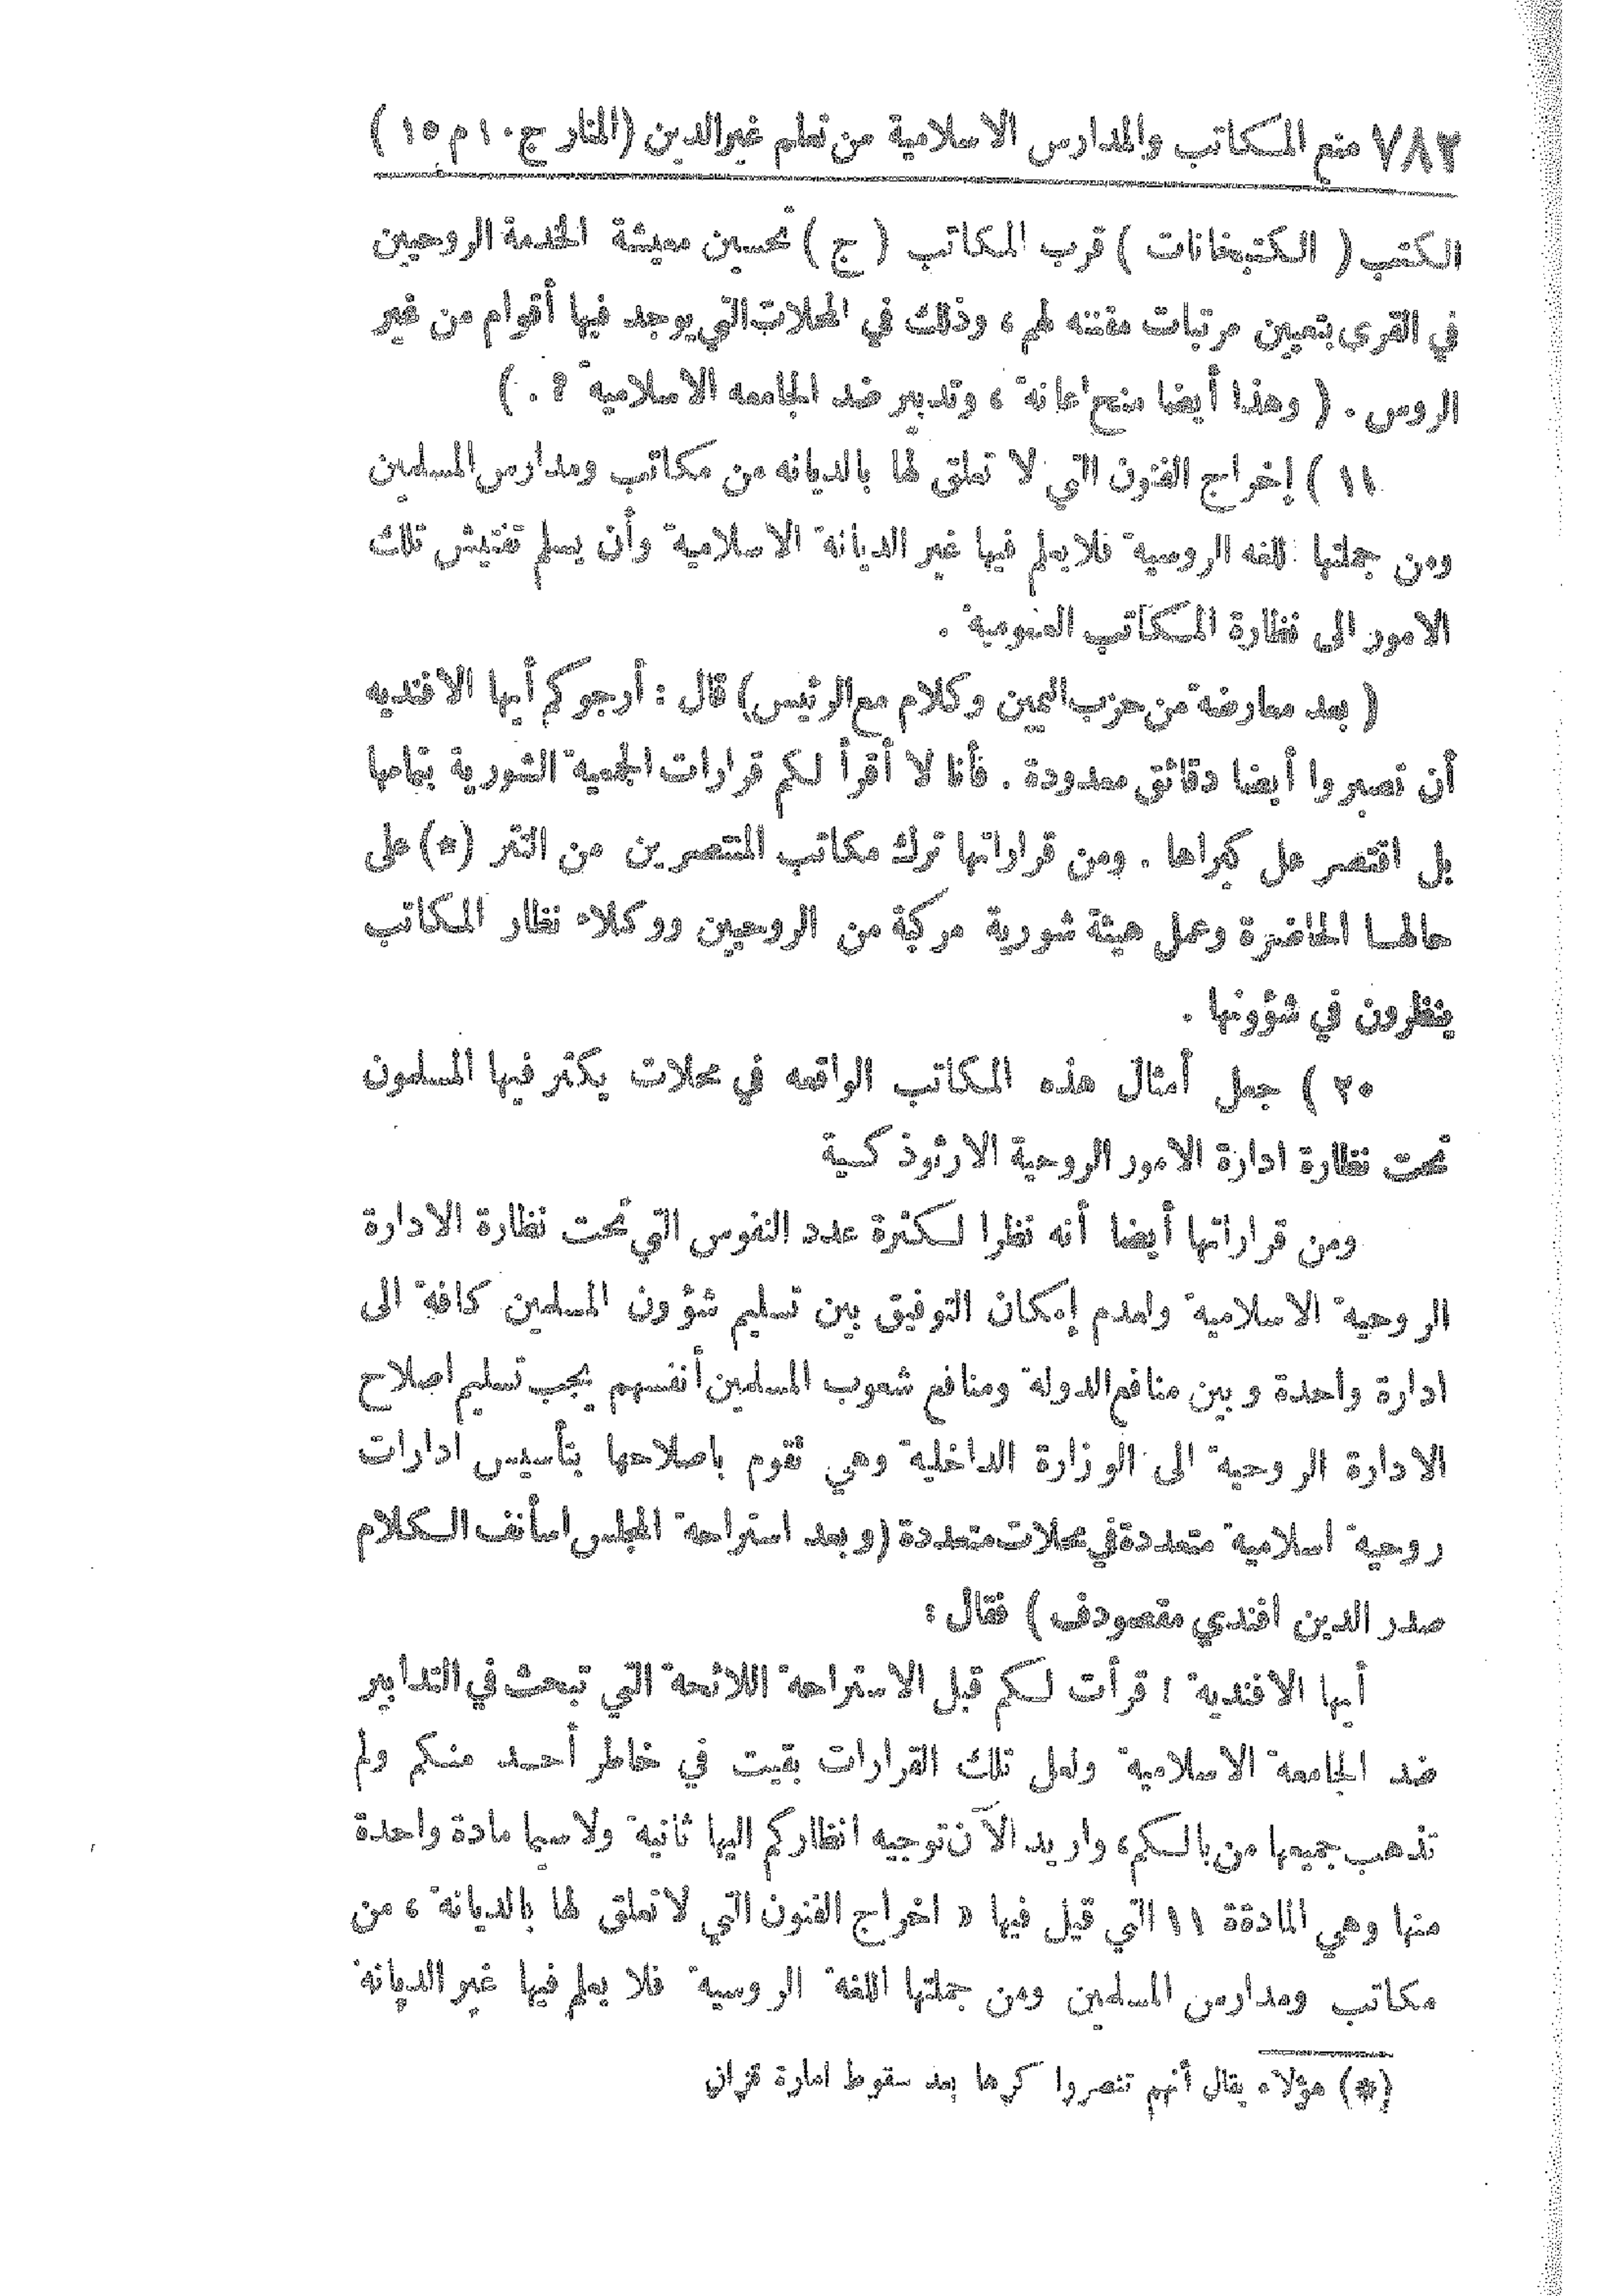 ٧٨٢ منع المكاتب والمدارس الاسلامية من تعلم غير الدين (المنار ج ١٠ م ١٥)
الكتب ( الكتبخانات ) قرب المكاتب ( ج ) تحسين معيشة الخدمة الروحيين
في القرى بتعيين مرتبات مقننه لهم ، وذلك في المحلات التي يوجد فيها أقوام من غير
الروس . ( وهذا أيضا منح اعانة ، وتدبير ضد الجامعه الاسلامية ؟ . )
١١ ) إخراج الفنون التي لا تعلق لها بالديانه من مكاتب ومدارس المسلمين
ومن جملتها اللغه الروسية فلا يعلم فيها غير الديانة الاسلامية وأن يسلم تفتيش تلك
الامور الى نظارة المكاتب العمومية .
( بعد معارضة من حزب اليمين وكلام مع الرئيس) قال : أرجوكم أيها الافنديه
أن تصبروا أيضا دقائق معدودة . فأنا لا أقرأ لكم قرارات الجمعية الشورية بتمامها
بل اقتصر على كبراها . ومن قراراتها ترك مكاتب المتنصرين من التتر (*) على
حالها الحاضرة وعمل هيئة شورية مركبة من الروحيين ووكلاء نظار المكاتب
ينظرون في شؤونها .
٢٠ ) جعل أمثال هذه المكاتب الواقعه في محلات يكثر فيها المسلمون
تحت نظارة ادارة الامور الروحية الارثوذكسية
ومن قراراتها أيضا أنه نظرا لكثرة عدد النفوس التي تحت نظارة الادارة
الروحية الاسلامية ولعدم إمكان التوفيق بين تسليم شؤون المسلمين كافة الى
ادارة واحدة وبين منافع الدولة ومنافع شعوب المسلمين أنفسهم يجب تسليم اصلاح
الادارة الروحية الى الوزارة الداخلية وهي تقوم باصلاحها بتأسيس ادارات
روحية اسلامية متعددة في محلات متعددة (وبعد استراحة المجلس استأنف الكلام
صدر الدين افندي مقصودف ) فقال :
أيها الافندية ! قرأت لكم قبل الاستراحة اللائحة التي تبحث في التدابير
ضد الجامعة الاسلامية ولعل تلك القرارات بقيت في خاطر أحد منكم ولم
تذهب جميعها من بالكم، واريد الآن توجيه انظاركم اليها ثانية ولاسيما مادة واحدة
منها وهي المادة ١١ التي قيل فيها « اخراج الفنون التي لا تعلق لها بالديانة ، من
مكاتب ومدارس المسلمين ومن جملتها اللغة الروسية فلا يعلم فيها غير الديانة
(*) هؤلاء يقال أنهم تنصروا كرها بعد سقوط امارة قزان